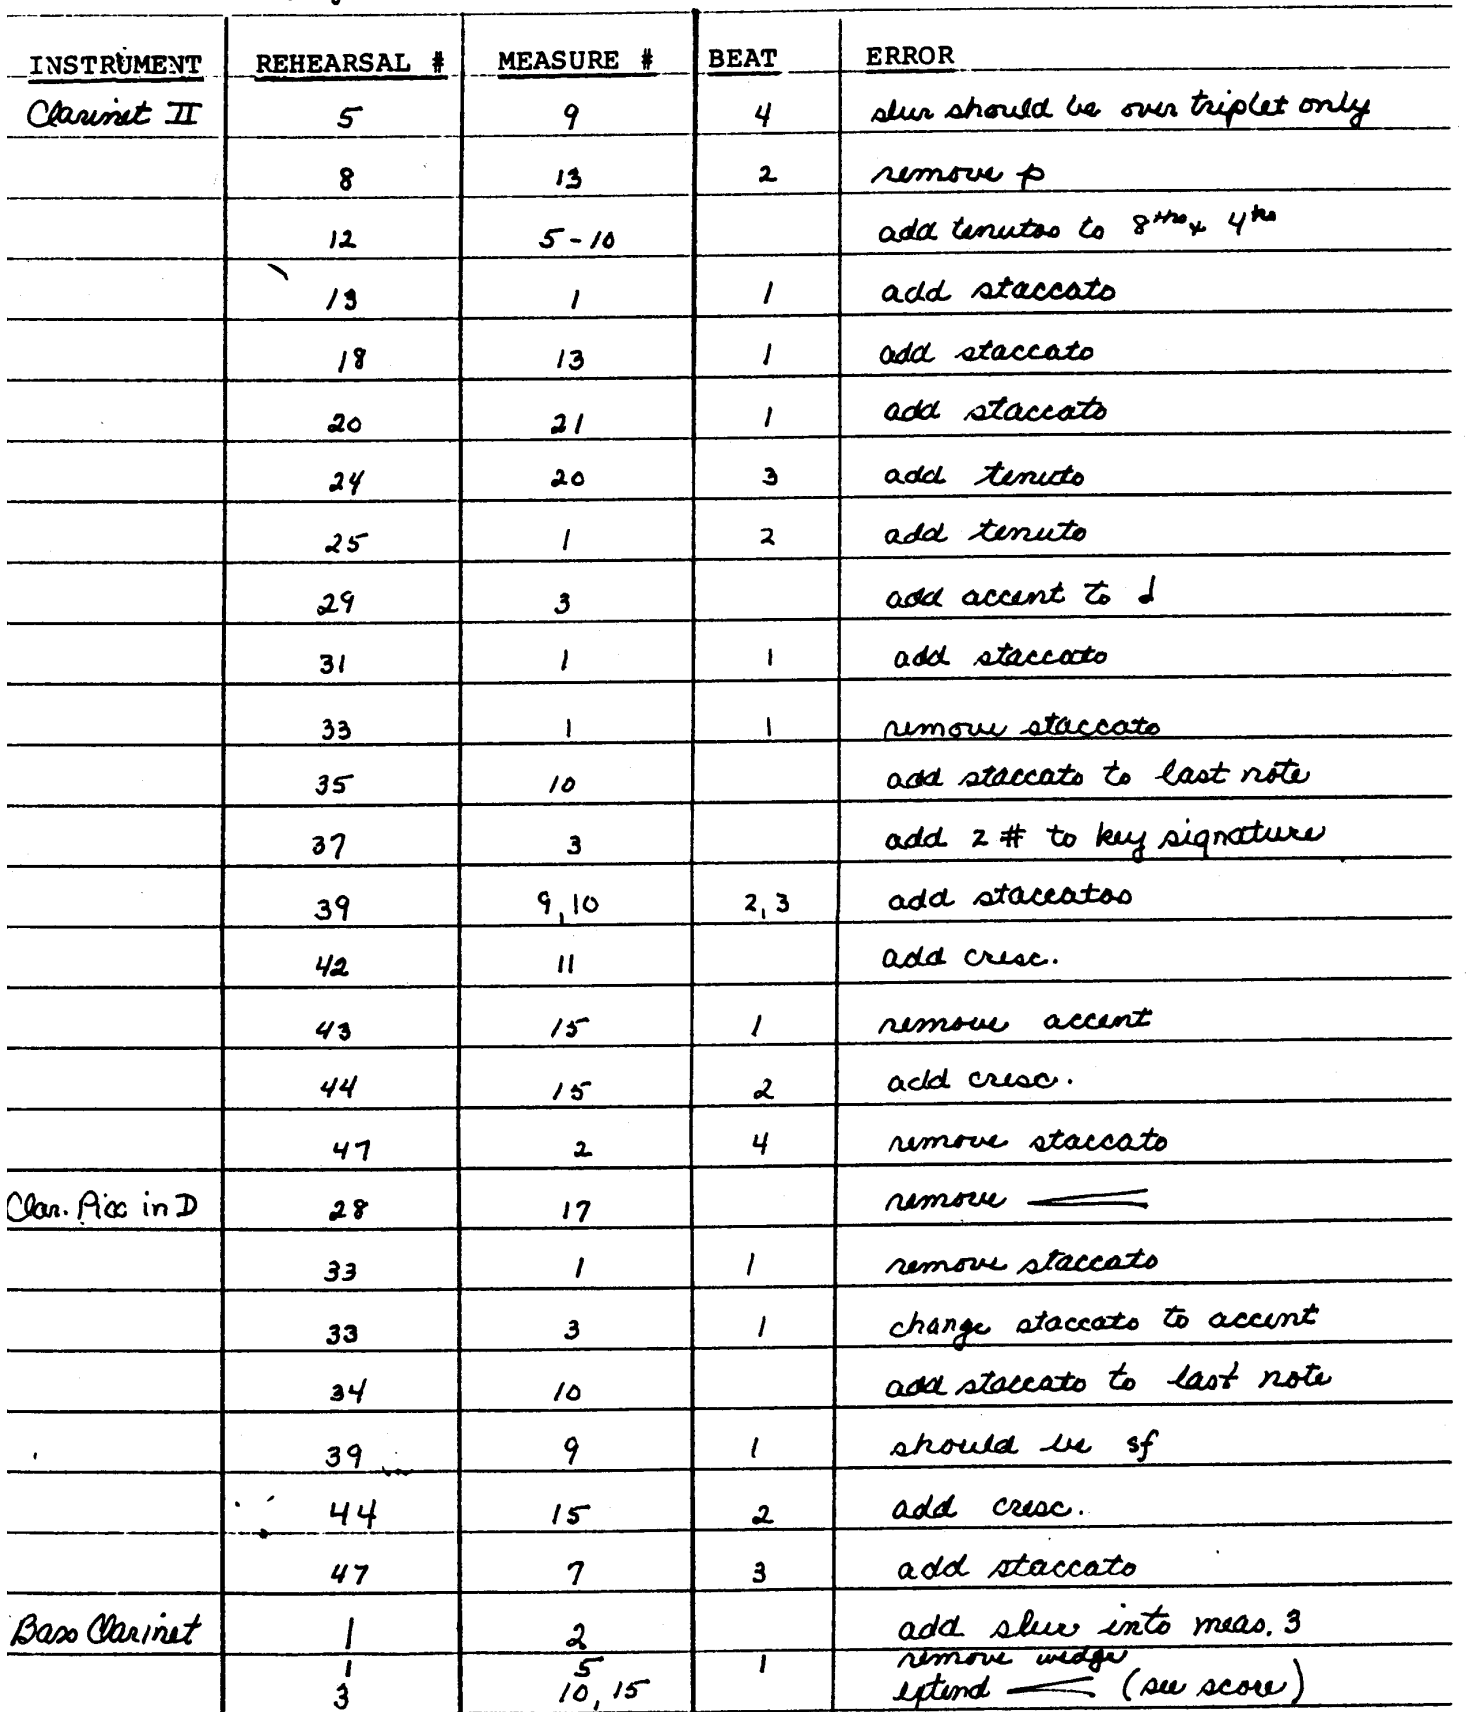 INSTRUMENT REHEARSAL # MEASURE # BEAT ERROR
Clarinet II 5 9 4 slur should be over triplet only
8 13 2 remove p
12 5-10 add tenutos to 8ths & 4ths
13 1 1 add staccato
18 13 1 add staccato
20 21 1 add staccato
24 20 3 add tenuto
25 1 2 add tenuto
29 3 add accent to 𝅗𝅥
31 1 1 add staccato
33 1 1 remove staccato
35 10 add staccato to last note
37 3 add 2 # to key signature
39 9,10 2,3 add staccatos
42 11 add cresc.
43 15 1 remove accent
44 15 2 add cresc.
47 2 4 remove staccato
Clar. Picc in D 28 17 remove <
33 1 1 remove staccato
33 3 1 change staccato to accent
34 10 add staccato to last note
39 9 1 should be sf
44 15 2 add cresc.
47 7 3 add staccato
Bass Clarinet 1 2 add slur into meas. 3
1 5 1 remove wedge
3 10,15 extend < (see score)